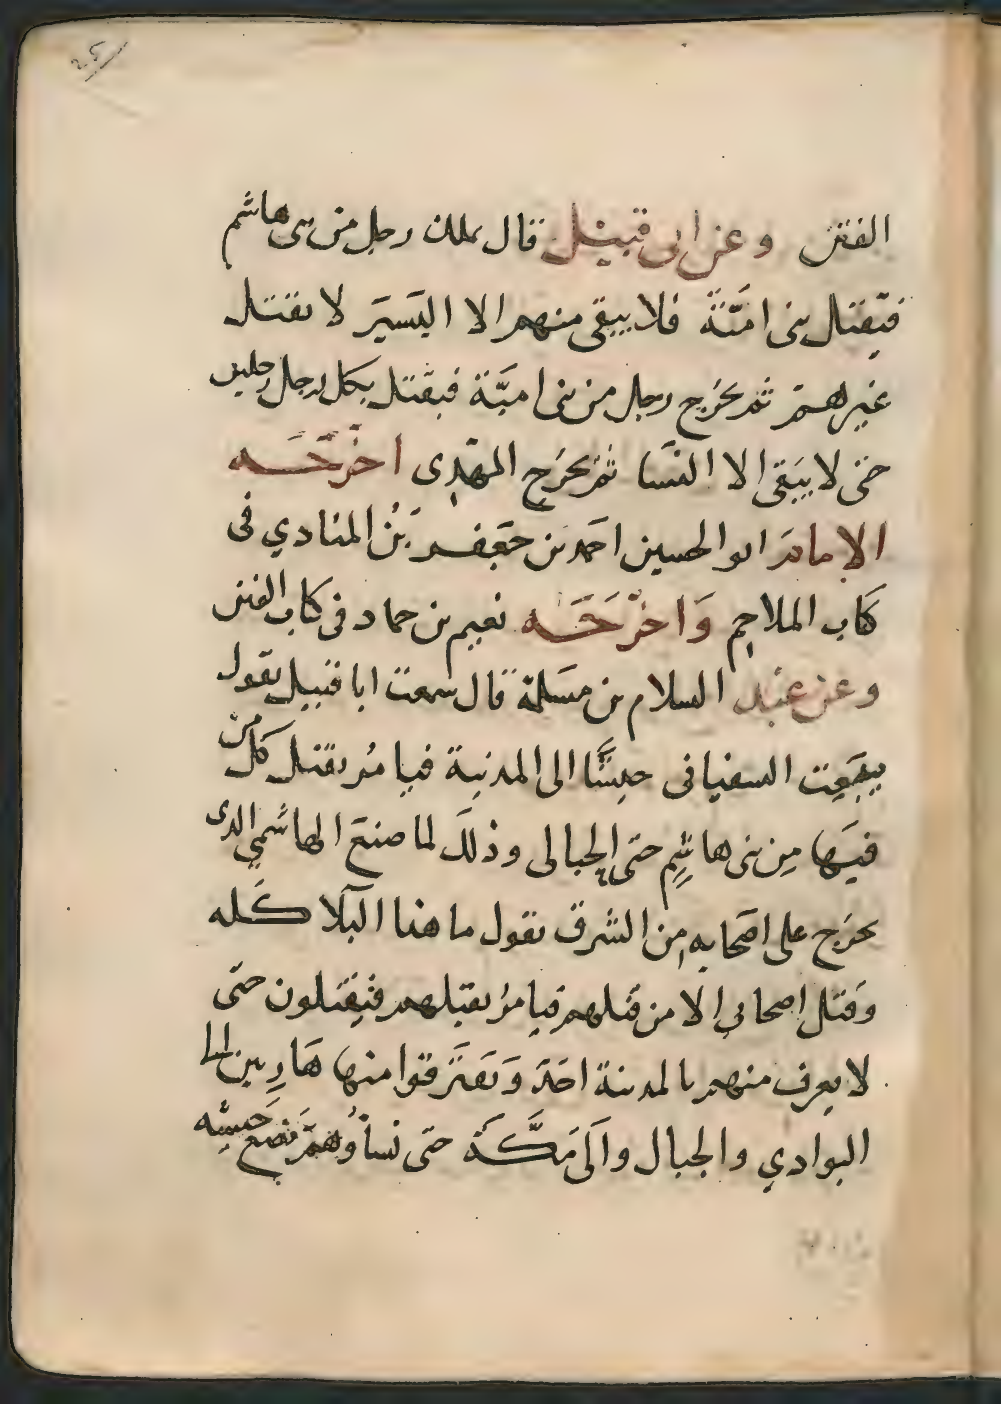 الفتن وعن ابى قبيل قال يملك رجل من بنى هاشم
فيقتل بنى امية فلا يبقى منهم الا اليسير لا يقتل
غيرهم ثم يخرج رجل من بنى امية فيقتل بكل رجل رجلين
حتى لا يبقى الا النسا ثم يخرج المهدى اخرجه
الامام ابو الحسين احمد بن جعفر بن المنادي فى
كاب الملاحم واخرجه نعيم بن حماد فى كاب الفتن
وعن عبد السلام بن مسلمة قال سمعت ابا قبيل يقول
يبعث السفيانى جيشا الى المدينة فيامر بقتل كل من
فيها من بنى هاشم حتى الحبالى وذلك لما صنع الهاشمي الذى
يخرج على اصحابه من الشرق يقول ما هذا البلا كله
وقتل اصحابي الا من قبلهم فيامر بقتلهم فيقتلون حتى
لا يعرف منهم بالمدينة احد وتفترقوا منها هاربين الى
البوادي والجبال والى مكة حتى نساؤهم فضع جيشه